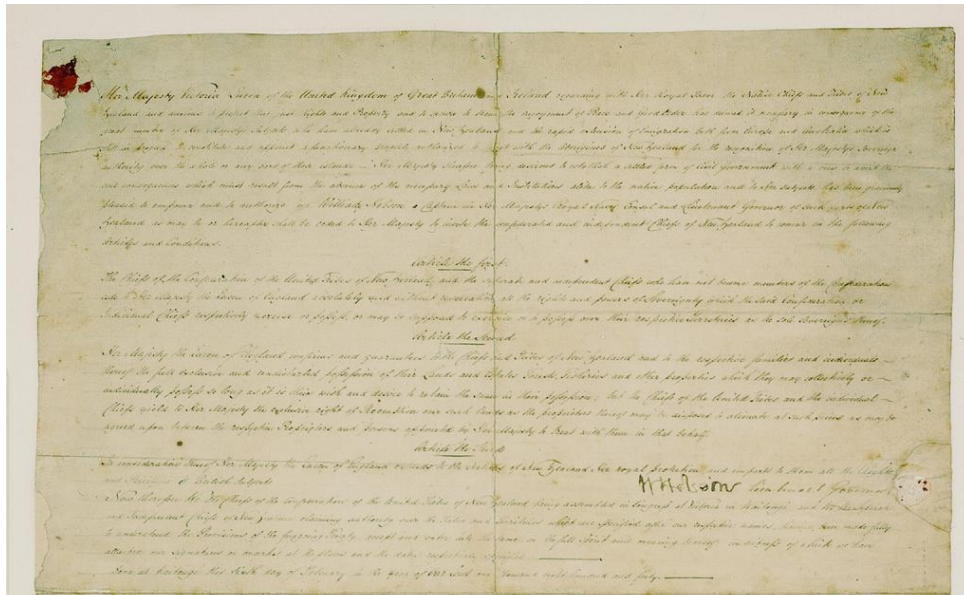 Her Majesty Victoria Queen of the United Kingdom of Great Britain and Ireland regarding with Her Royal Favor the Native Chiefs and Tribes of New
Zealand and anxious to protect their just Rights and Property and to secure to them the enjoyment of Peace and Good Order has deemed it necessary in consequence of the
great number of Her Majesty's Subjects who have already settled in New Zealand and the rapid extension of Emigration both from Europe and Australia which is
still in progress to constitute and appoint a functionary properly authorized to treat with the Aborigines of New Zealand for the recognition of Her Majesty's Sovereign
authority over the whole or any part of those islands. Her Majesty therefore being desirous to establish a settled form of Civil Government with a view to avert the
evil consequences which must result from the absence of the necessary Laws and Institutions alike to the native population and to Her subjects has been graciously
pleased to empower and to authorize me William Hobson a Captain in Her Majesty's Royal Navy Consul and Lieutenant Governor of such parts of New
Zealand as may be or hereafter shall be ceded to Her Majesty to invite the confederated and independent Chiefs of New Zealand to concur in the following
Articles and Conditions.
Article the first
The Chiefs of the Confederation of the United Tribes of New Zealand and the separate and independent Chiefs who have not become members of the Confederation
cede to Her Majesty the Queen of England absolutely and without reservation all the rights and powers of Sovereignty which the said Confederation or
Individual Chiefs respectively exercise or possess, or may be supposed to exercise or to possess over their respective Territories as the sole Sovereigns thereof.
Article the Second
Her Majesty the Queen of England confirms and guarantees to the Chiefs and Tribes of New Zealand and to the respective families and individuals
thereof the full exclusive and undisturbed possession of their Lands and Estates Forests Fisheries and other properties which they may collectively or
individually possess so long as it is their wish and desire to retain the same in their possession; but the Chiefs of the United Tribes and the individual
Chiefs yield to Her Majesty the exclusive right of Preemption over such lands as the proprietors thereof may be disposed to alienate at such prices as may be
agreed upon between the respective Proprietors and persons appointed by Her Majesty to treat with them in that behalf.
Article the Third
In consideration thereof Her Majesty the Queen of England extends to the Natives of New Zealand Her royal protection and imparts to them all the Rights
and Privileges of British Subjects
W Hobson Lieutenant Governor
Now therefore We the Chiefs of the Confederation of the United Tribes of New Zealand being assembled in Congress at Victoria in Waitangi and We the Separate
and Independent Chiefs of New Zealand claiming authority over the Tribes and Territories which are specified after our respective names, having been made fully
to understand the Provisions of the foregoing Treaty, accept and enter into the same in the full spirit and meaning thereof in witness of which we have
attached our signatures or marks at the places and the dates respectively specified
Done at Waitangi this Sixth day of February in the year of our Lord one thousand eight hundred and forty.